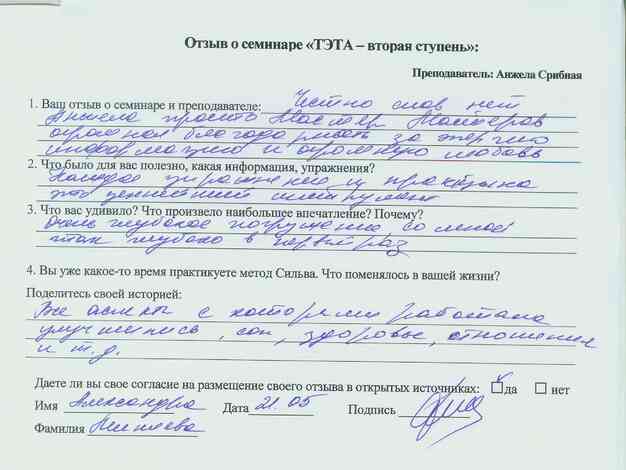 Отзыв о семинаре «ТЭТА – вторая ступень»:
Преподаватель: Анжела Срибная
1. Ваш отзыв о семинаре и преподавателе: Честно слов нет
Анжела просто Мастер Мастеров
огромная благодарность за энергию
информацию и огромную любовь
2. Что было для вас полезно, какая информация, упражнения?
Каждое упражнение и практика
это ценнейший инструмент
3. Что вас удивило? Что произвело наибольшее впечатление? Почему?
Очень глубокое погружение со мной
так глубоко в первый раз
4. Вы уже какое-то время практикуете метод Сильва. Что поменялось в вашей жизни?
Поделитесь своей историей:
Все аспекты с которыми работала
улучшились, сон, здоровье, отношения
и т.д.
Даете ли вы свое согласие на размещение своего отзыва в открытых источниках: да нет
Имя Александра Дата 21.05 Подпись
Фамилия